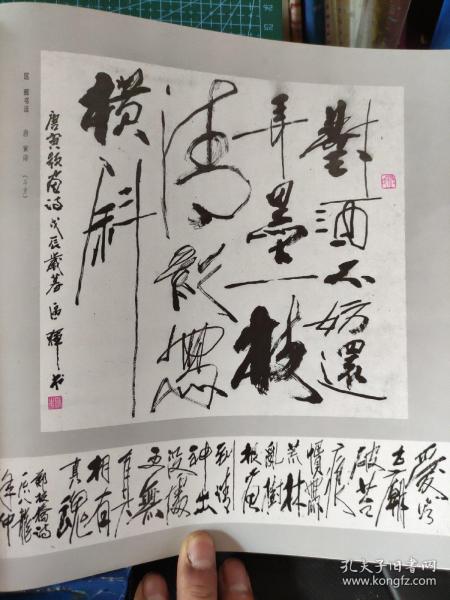 對酒不妨還
弄墨一枝
清影寫
橫斜
唐寅題畫詩 戊辰歲暮 區輝书
愛看
古廟
破苔
痕
慣寫
荒林
亂樹
根畫
到情
神出
没處
更無
真
相有
真魂
鄭板橋詩
年仲
孔夫子旧书网
www.kongfz.com